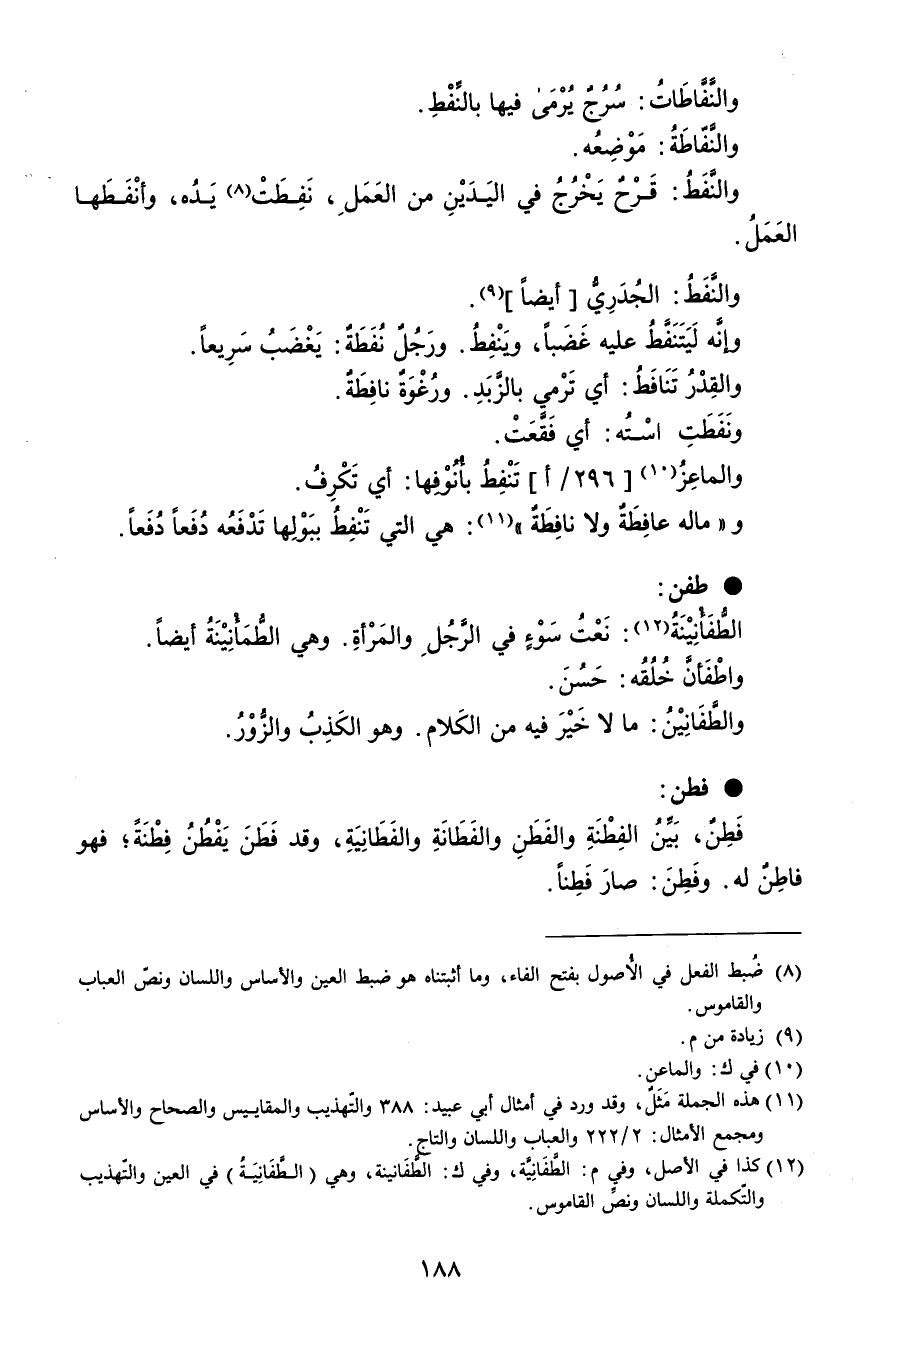 والنَّفَّاطَاتُ: سُرُجٌ يُرْمَىٰ فيها بالنِّفْطِ.
والنَّفّاطَةُ: مَوْضِعُه.
والنَّفَطُ: قَرْحٌ يَخْرُجُ في اليَدَيْنِ من العَمَلِ، نَفِطَتْ(٨) يَدُه، وأنْفَطَها
العَمَلُ.
والنَّفَطُ: الجُدَرِيُّ [ أيضاً ](٩).
وإنَّه لَيَتَنَفَّطُ عليه غَضَباً، ويَنْفِطُ. ورَجُلٌ نُفَطَةٌ: يَغْضَبُ سَرِيعاً.
والقِدْرُ تَنَافَطُ: أي تَرْمي بالزَّبَدِ. ورُغْوَةٌ نافِطَةٌ.
ونَفَطَتِ اسْتُه: أي فَقَّعَتْ.
والماعِزُ(١٠) [ ٢٩٦/ أ ] تَنْفِطُ بأُنُوْفِها: أي تَكْرِفُ.
و « ماله عافِطَةٌ ولا نافِطَةٌ »(١١): هي التي تَنْفِطُ ببَوْلِها تَدْفَعُه دُفَعاً دُفَعاً.
● طفن:
الطُّفَأْنِيْنَةُ(١٢): نَعْتُ سَوْءٍ في الرَّجُلِ والمَرْأةِ. وهي الطُّمَأْنِيْنَةُ أيضاً.
واطْفَأنَّ خُلُقُه: حَسُنَ.
والطَّفَانِيْنُ: ما لا خَيْرَ فيه من الكَلام. وهو الكَذِبُ والزُّوْرُ.
● فطن:
فَطِنٌ، بَيِّنُ الفِطْنَةِ والفَطَنِ والفَطَانَةِ والفَطَانِيَةِ، وقد فَطَنَ يَفْطُنُ فِطْنَةً؛ فهو
فاطِنٌ له. وفَطِنَ: صارَ فَطِناً.
(٨) ضُبط الفعل في الأُصول بفتح الفاء، وما أثبتناه هو ضبط العين والأساس واللسان ونصّ العباب
والقاموس.
(٩) زيادة من م.
(١٠) في ك: والماعن.
(١١) هذه الجملة مَثَلٌ، وقد ورد في أمثال أبي عبيد: ٣٨٨ والتّهذيب والمقاييس والصحاح والأساس
ومجمع الأمثال: ٢٢٢/٢ والعباب واللسان والتاج.
(١٢) كذا في الأصل، وفي م: الطَّفَانِيَّة، وفي ك: الطَّفَانينة، وهي ( الطَّفَانِيَةُ ) في العين والتّهذيب
والتّكملة واللسان ونصِّ القاموس.
١٨٨